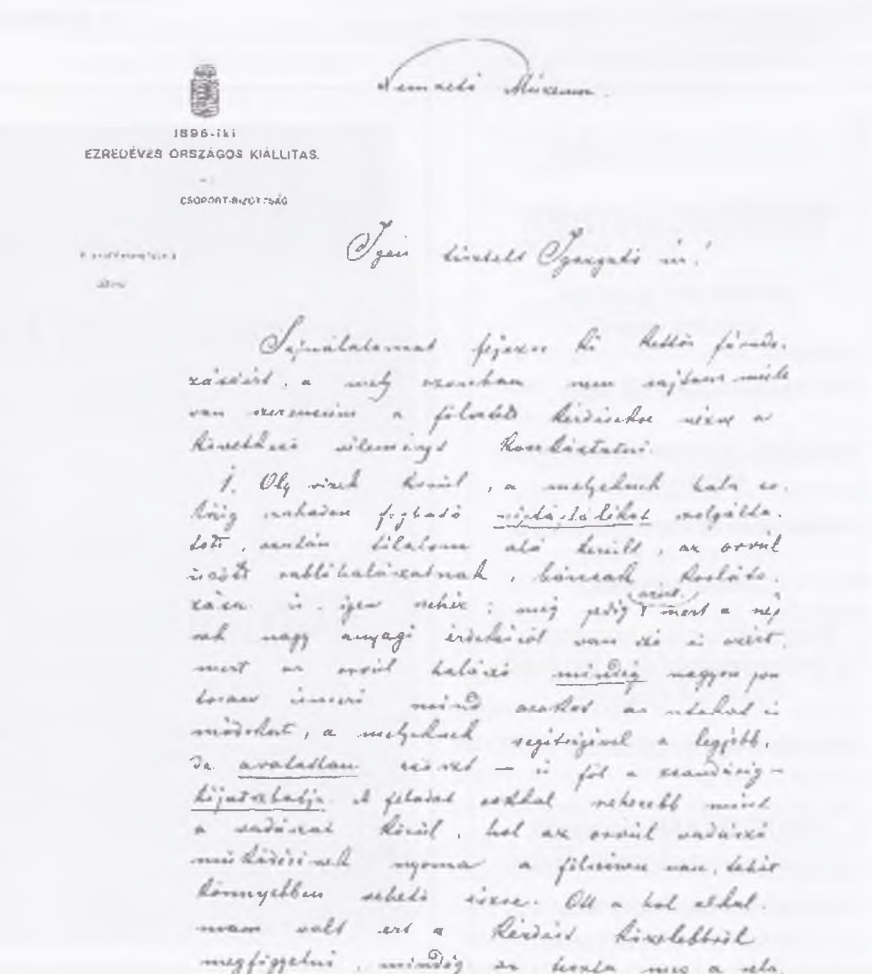 Nemzeti Múzeum.
1896-iki
EZREDÉVES ORSZÁGOS KIÁLLITÁS.
CSOPORT-BIZOTTSÁG
Igen tisztelt Igazgató úr!
Sajnálatomat fejezve ki kettős fárado-
zásáért, a mely azonban nem rajtam múlt
van szerencsém a fölvetett kérdésekre nézve a
következő véleményt
1. Oly vizek körül, a melyeknek hala
szabadon fogható szolgálta-
tott, azután tilalom alá került, az orvúl
űzött rablóhalászatnak, bárcsak korláto-
zása is igen nehéz; még pedig azért mert a nép-
nek nagy anyagi érdekeiről van szó és azért,
mert az orvúl halászó mindég nagyon pon-
tosan ismeri mind azokat az utakat és
módokat, a melyeknek segítségével a legjobb,
de avatatlan és föl a
kijátszhatja. A feladat sokkal nehezebb mint
a vadászat körül, hol az orvúl vadászó
működésének nyoma a fölszinen van, tehát
könnyebben vehető észre. Ott a hol alkal-
mam volt ezt a kérdést közelebbről
megfigyelni, mindég az hozta meg a